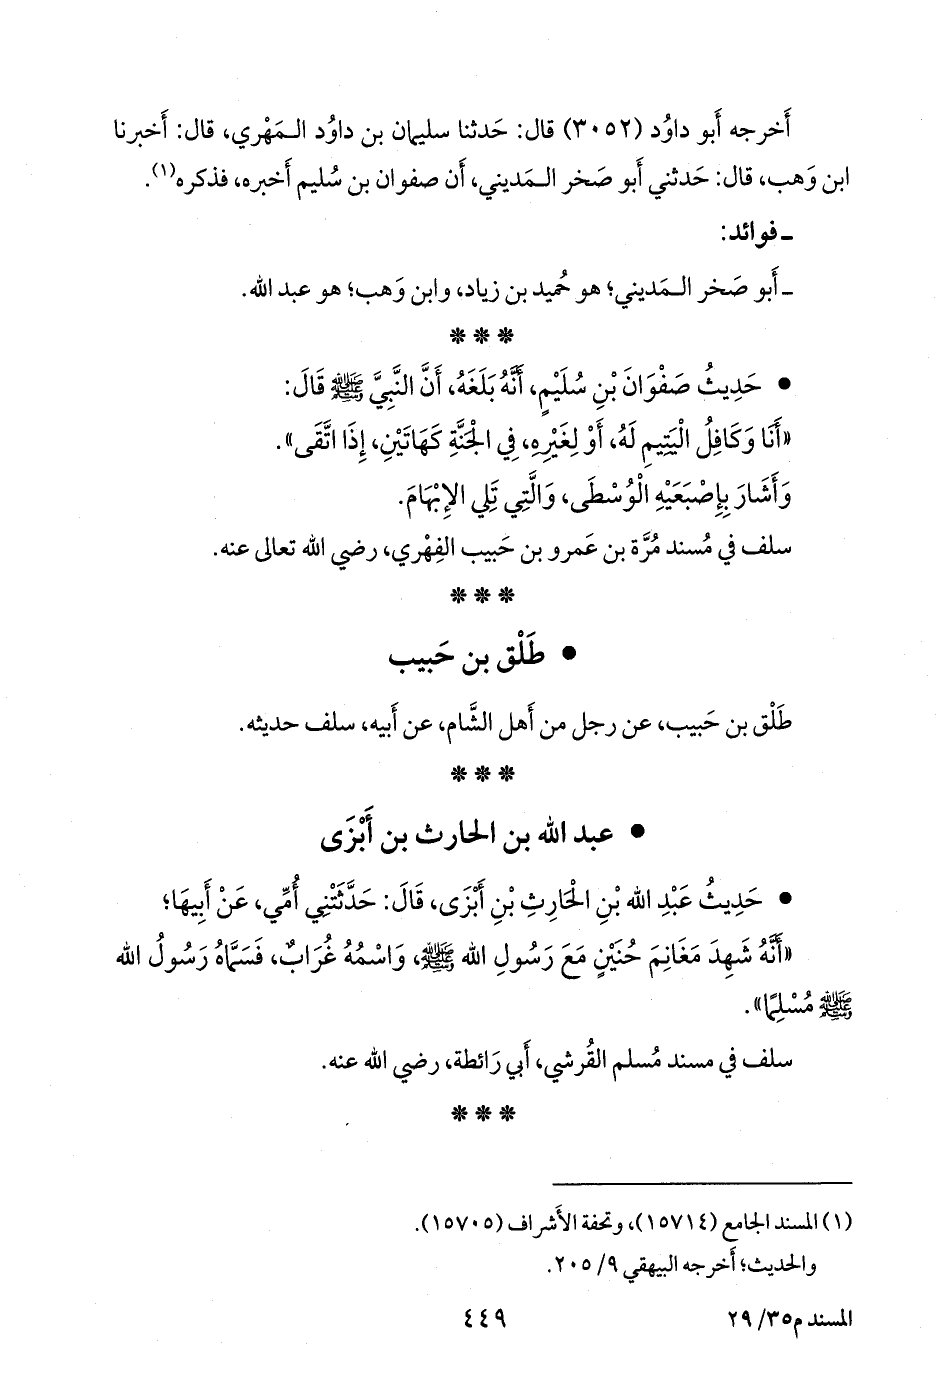 أَخرجه أَبو داوُد (٣٠٥٢) قال: حَدثنا سليمان بن داوُد الـمَهْري، قال: أَخبرنا
ابن وَهب، قال: حَدثني أَبو صَخر الـمَديني، أَن صفوان بن سُليم أَخبره، فذكره(١).
ـ فوائد:
ـ أَبو صَخر الـمَديني؛ هو حُميد بن زياد، وابن وَهب؛ هو عبد الله.
* * *
• حَدِيثُ صَفْوَانَ بْنِ سُلَيْمٍ، أَنَّهُ بَلَغَهُ، أَنَّ النَّبِيَّ ﷺ قَالَ:
«أَنَا وَكَافِلُ الْيَتِيمِ لَهُ، أَوْ لِغَيْرِهِ، فِي الْجَنَّةِ كَهَاتَيْنِ، إِذَا اتَّقَى».
وَأَشَارَ بِإِصْبَعَيْهِ الْوُسْطَى، وَالَّتِي تَلِي الإِبْهَامَ.
سلف في مُسند مُرَّة بن عَمرو بن حَبيب الفِهْري، رضي الله تعالى عنه.
* * *
• طَلْق بن حَبيب
طَلْق بن حَبيب، عن رجل من أَهل الشَّام، عن أَبيه، سلف حديثه.
* * *
• عبد الله بن الحارث بن أَبْزَى
• حَدِيثُ عَبْدِ الله بْنِ الْحَارِثِ بْنِ أَبْزَى، قَالَ: حَدَّثَتْنِي أُمِّي، عَنْ أَبِيهَا؛
«أَنَّهُ شَهِدَ مَغَانِمَ حُنَيْنٍ مَعَ رَسُولِ الله ﷺ، وَاسْمُهُ غُرَابٌ، فَسَمَّاهُ رَسُولُ الله
ﷺ مُسْلِمًا».
سلف في مسند مُسلم القُرشي، أَبي رَائطة، رضي الله عنه.
* * *
(١) المسند الجامع (١٥٧١٤)، وتحفة الأَشراف (١٥٧٠٥).
والحديث؛ أَخرجه البيهقي ٩/ ٢٠٥.
المسند م٣٥/ ٢٩
٤٤٩